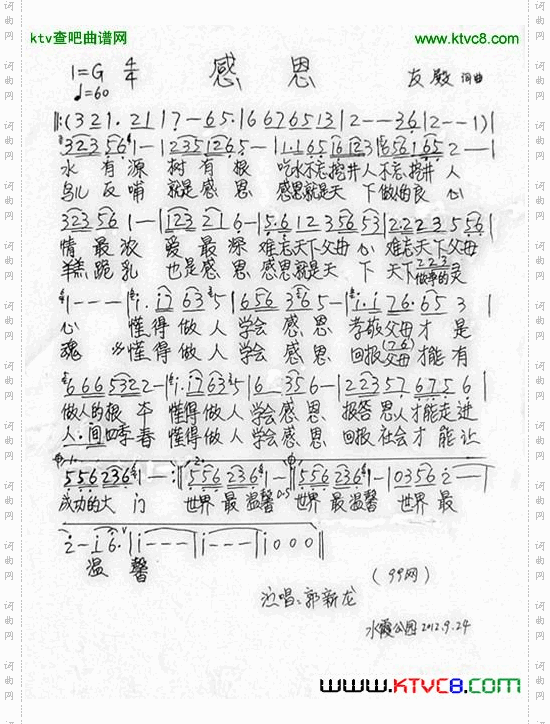 ktv查吧曲谱网 www.ktvc8.com
1=G 4/4 感 恩 友殿 词曲
♩=60
‖:(3 2 1. 2 1 | 7 — 6 5. | 6 6 7 6 5 1 3 | 2 — — 3 6 | 2 — — 1) |
3 2 3 5 6 1 — | 1 2 3 5 1 2 6 5 — | 1. 1 6 5 1 6 1 2 3 | 5 5 6 1 6 5 2 — |
水 有 源 树 有 根 吃水不忘挖井人 不忘挖井 人
乌儿 反 哺 就是 感 恩 感恩就是天 下 做的良 心
3 2 3 5 6 1 — | 1 2 3 2 1 6 — | 5. 6 1 2 3 5 6 5 3 | 2. 2 2 3 5 5 6 |
情 最 浓 爱 最 深 难忘天下父母 心 难忘天下父母
羊羔 跪 乳 也是 感 恩 感恩就是天 下 天下做事的灵
1 — — — | i. i 7 6 3 5 | 6 5 6 3 6 5 — | i. i 7 6. 6 5 3 |
心 懂得 做 人 学会 感 恩 孝敬 父母 才 是
魂 懂得 做 人 学会 感 恩 回报 父母 才能 有
6 6 6 5 3 2 2 — | i. i 7 6 3 5 | 6 3 5 6 — | 2 2 3 5 7 6 7 5 6 |
做人的根 本 懂得 做 人 学会 感 恩 报答 恩人 才能 走进
人 间 四季 春 懂得 做 人 学会 感 恩 回报 社会 才 能 让
5 5 6 2 3 6 1 — :‖ 5 5 6 2 3 6 1 — ‖ 5 5 6 2 3 6 1 — | 0 3 5 6 2 — |
成功的大 门 世界 最 温馨 D.S 世界 最 温馨 世界 最
2 — i 6. | i — — — | i — — — | i 0 0 0 ‖
温 馨
(99网)
演唱:郭新龙
水霞公园 2012.9.24
www.KTVC8.com
词曲网
词曲网
词曲网
词曲网
词曲网
词曲网
词曲网
词曲网
词曲网
词曲网
词曲网
词曲网